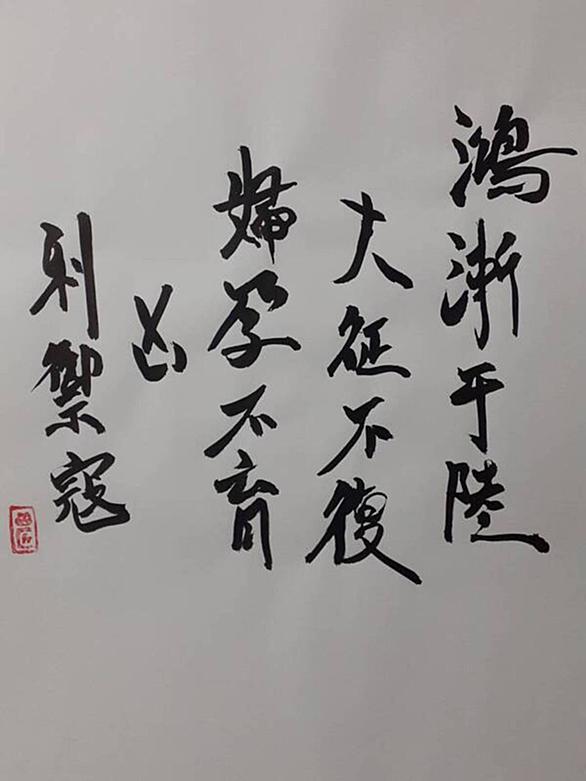 鴻漸于陸
夫征不復
婦孕不育
凶
利禦寇